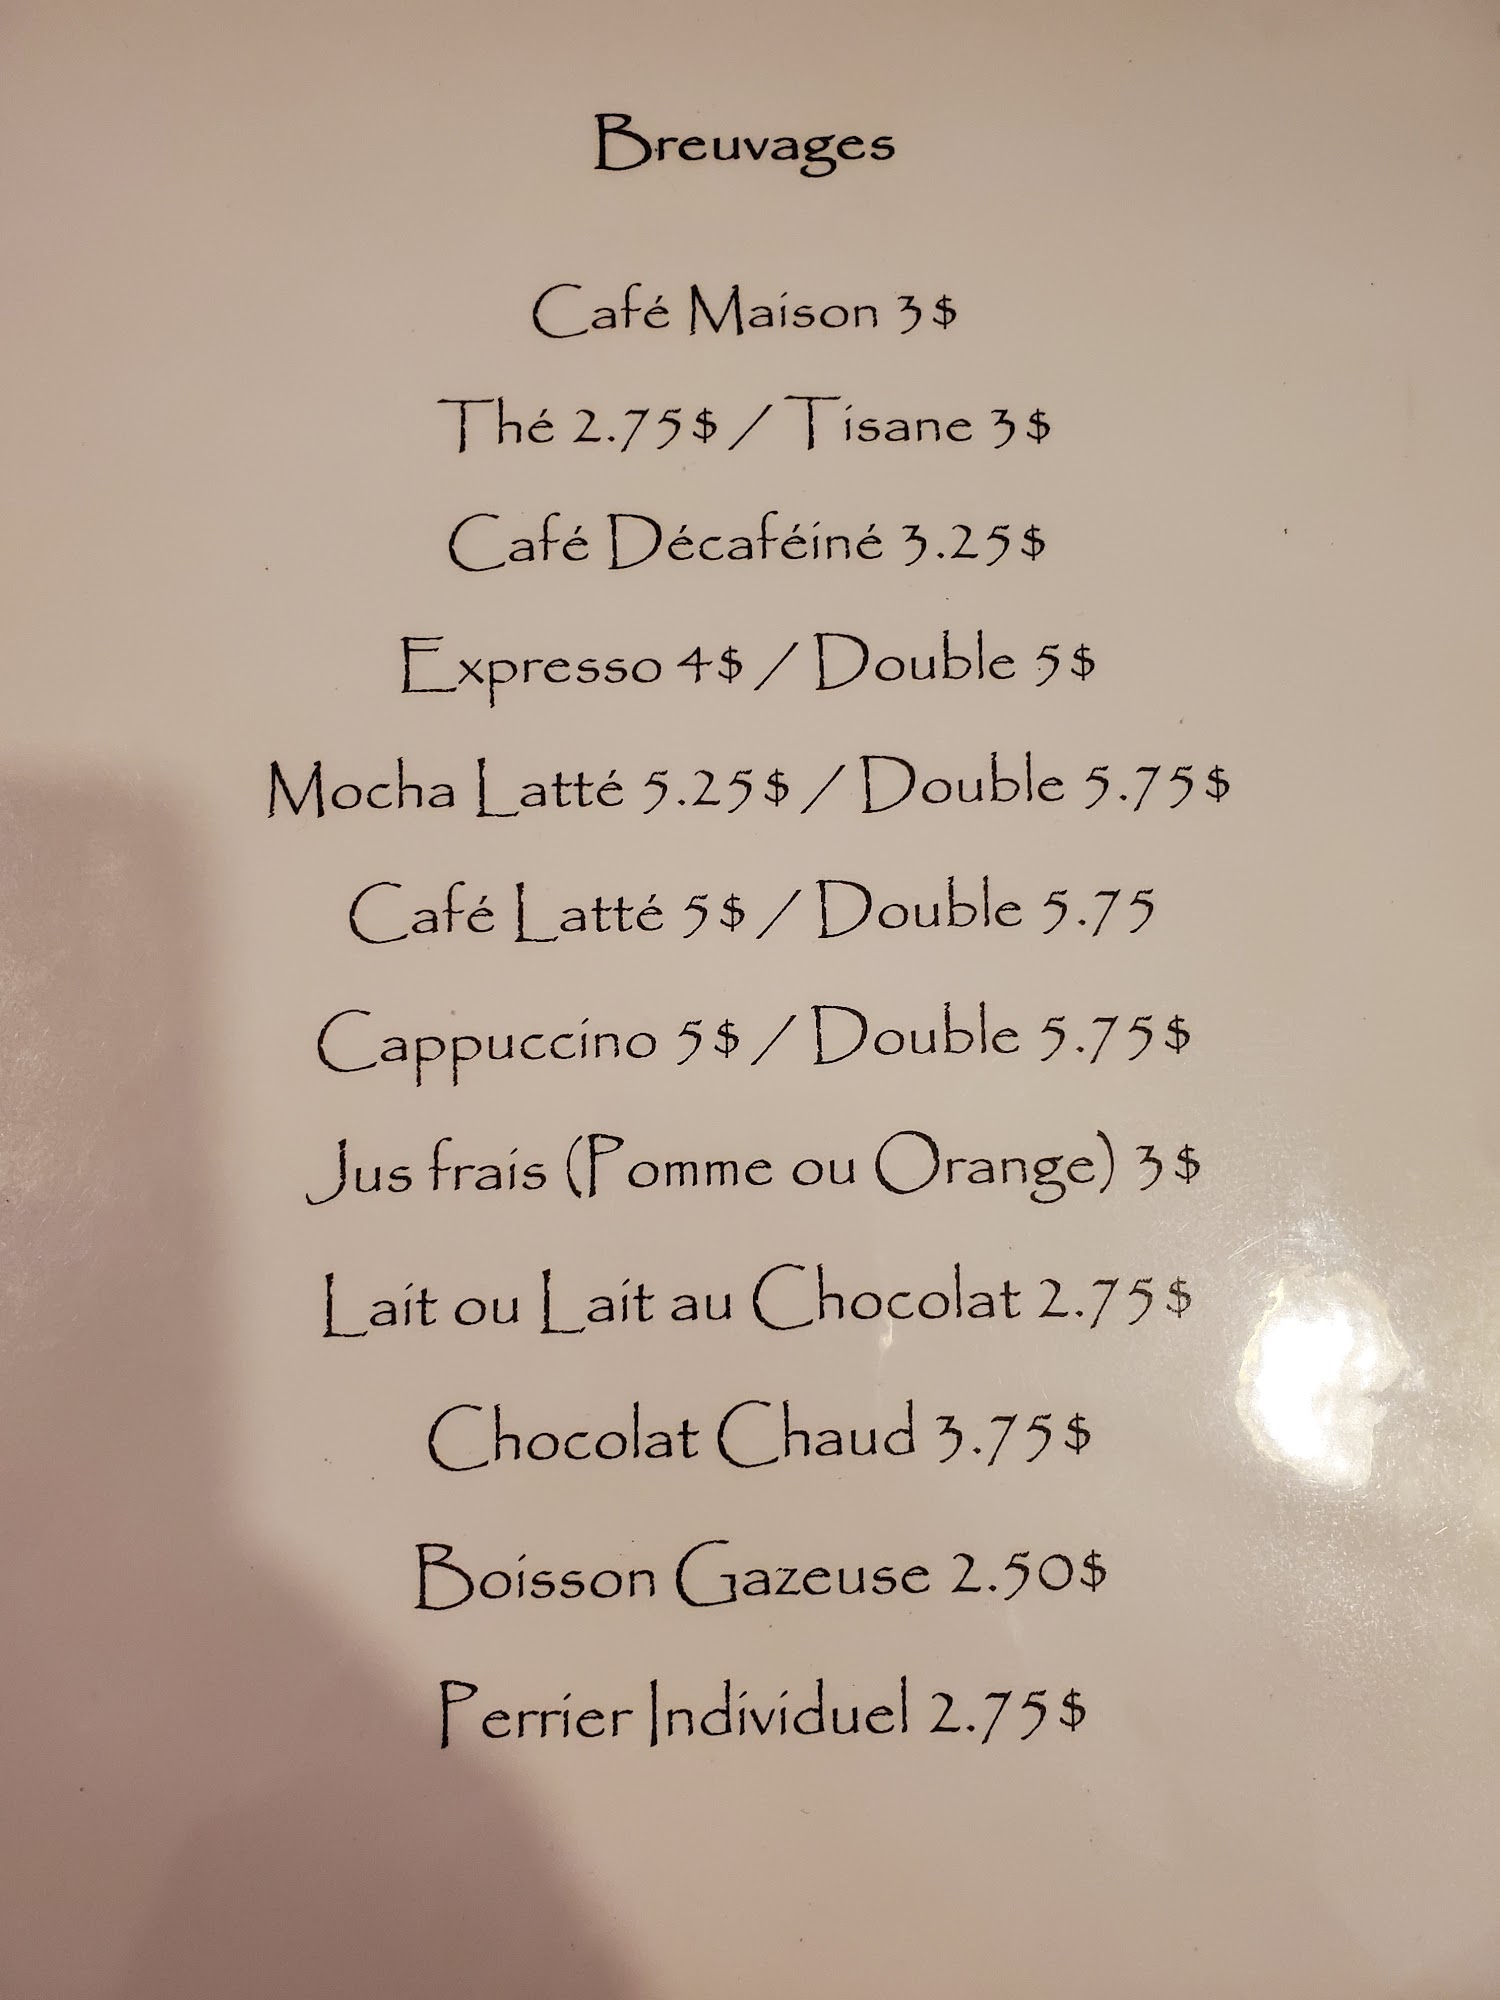 Breuvages
Café Maison 3$
Thé 2.75$ / Tisane 3$
Café Décaféiné 3.25$
Expresso 4$ / Double 5$
Mocha Latté 5.25$ / Double 5.75$
Café Latté 5$ / Double 5.75
Cappuccino 5$ / Double 5.75$
Jus frais (Pomme ou Orange) 3$
Lait ou Lait au Chocolat 2.75$
Chocolat Chaud 3.75$
Boisson Gazeuse 2.50$
Perrier Individuel 2.75$